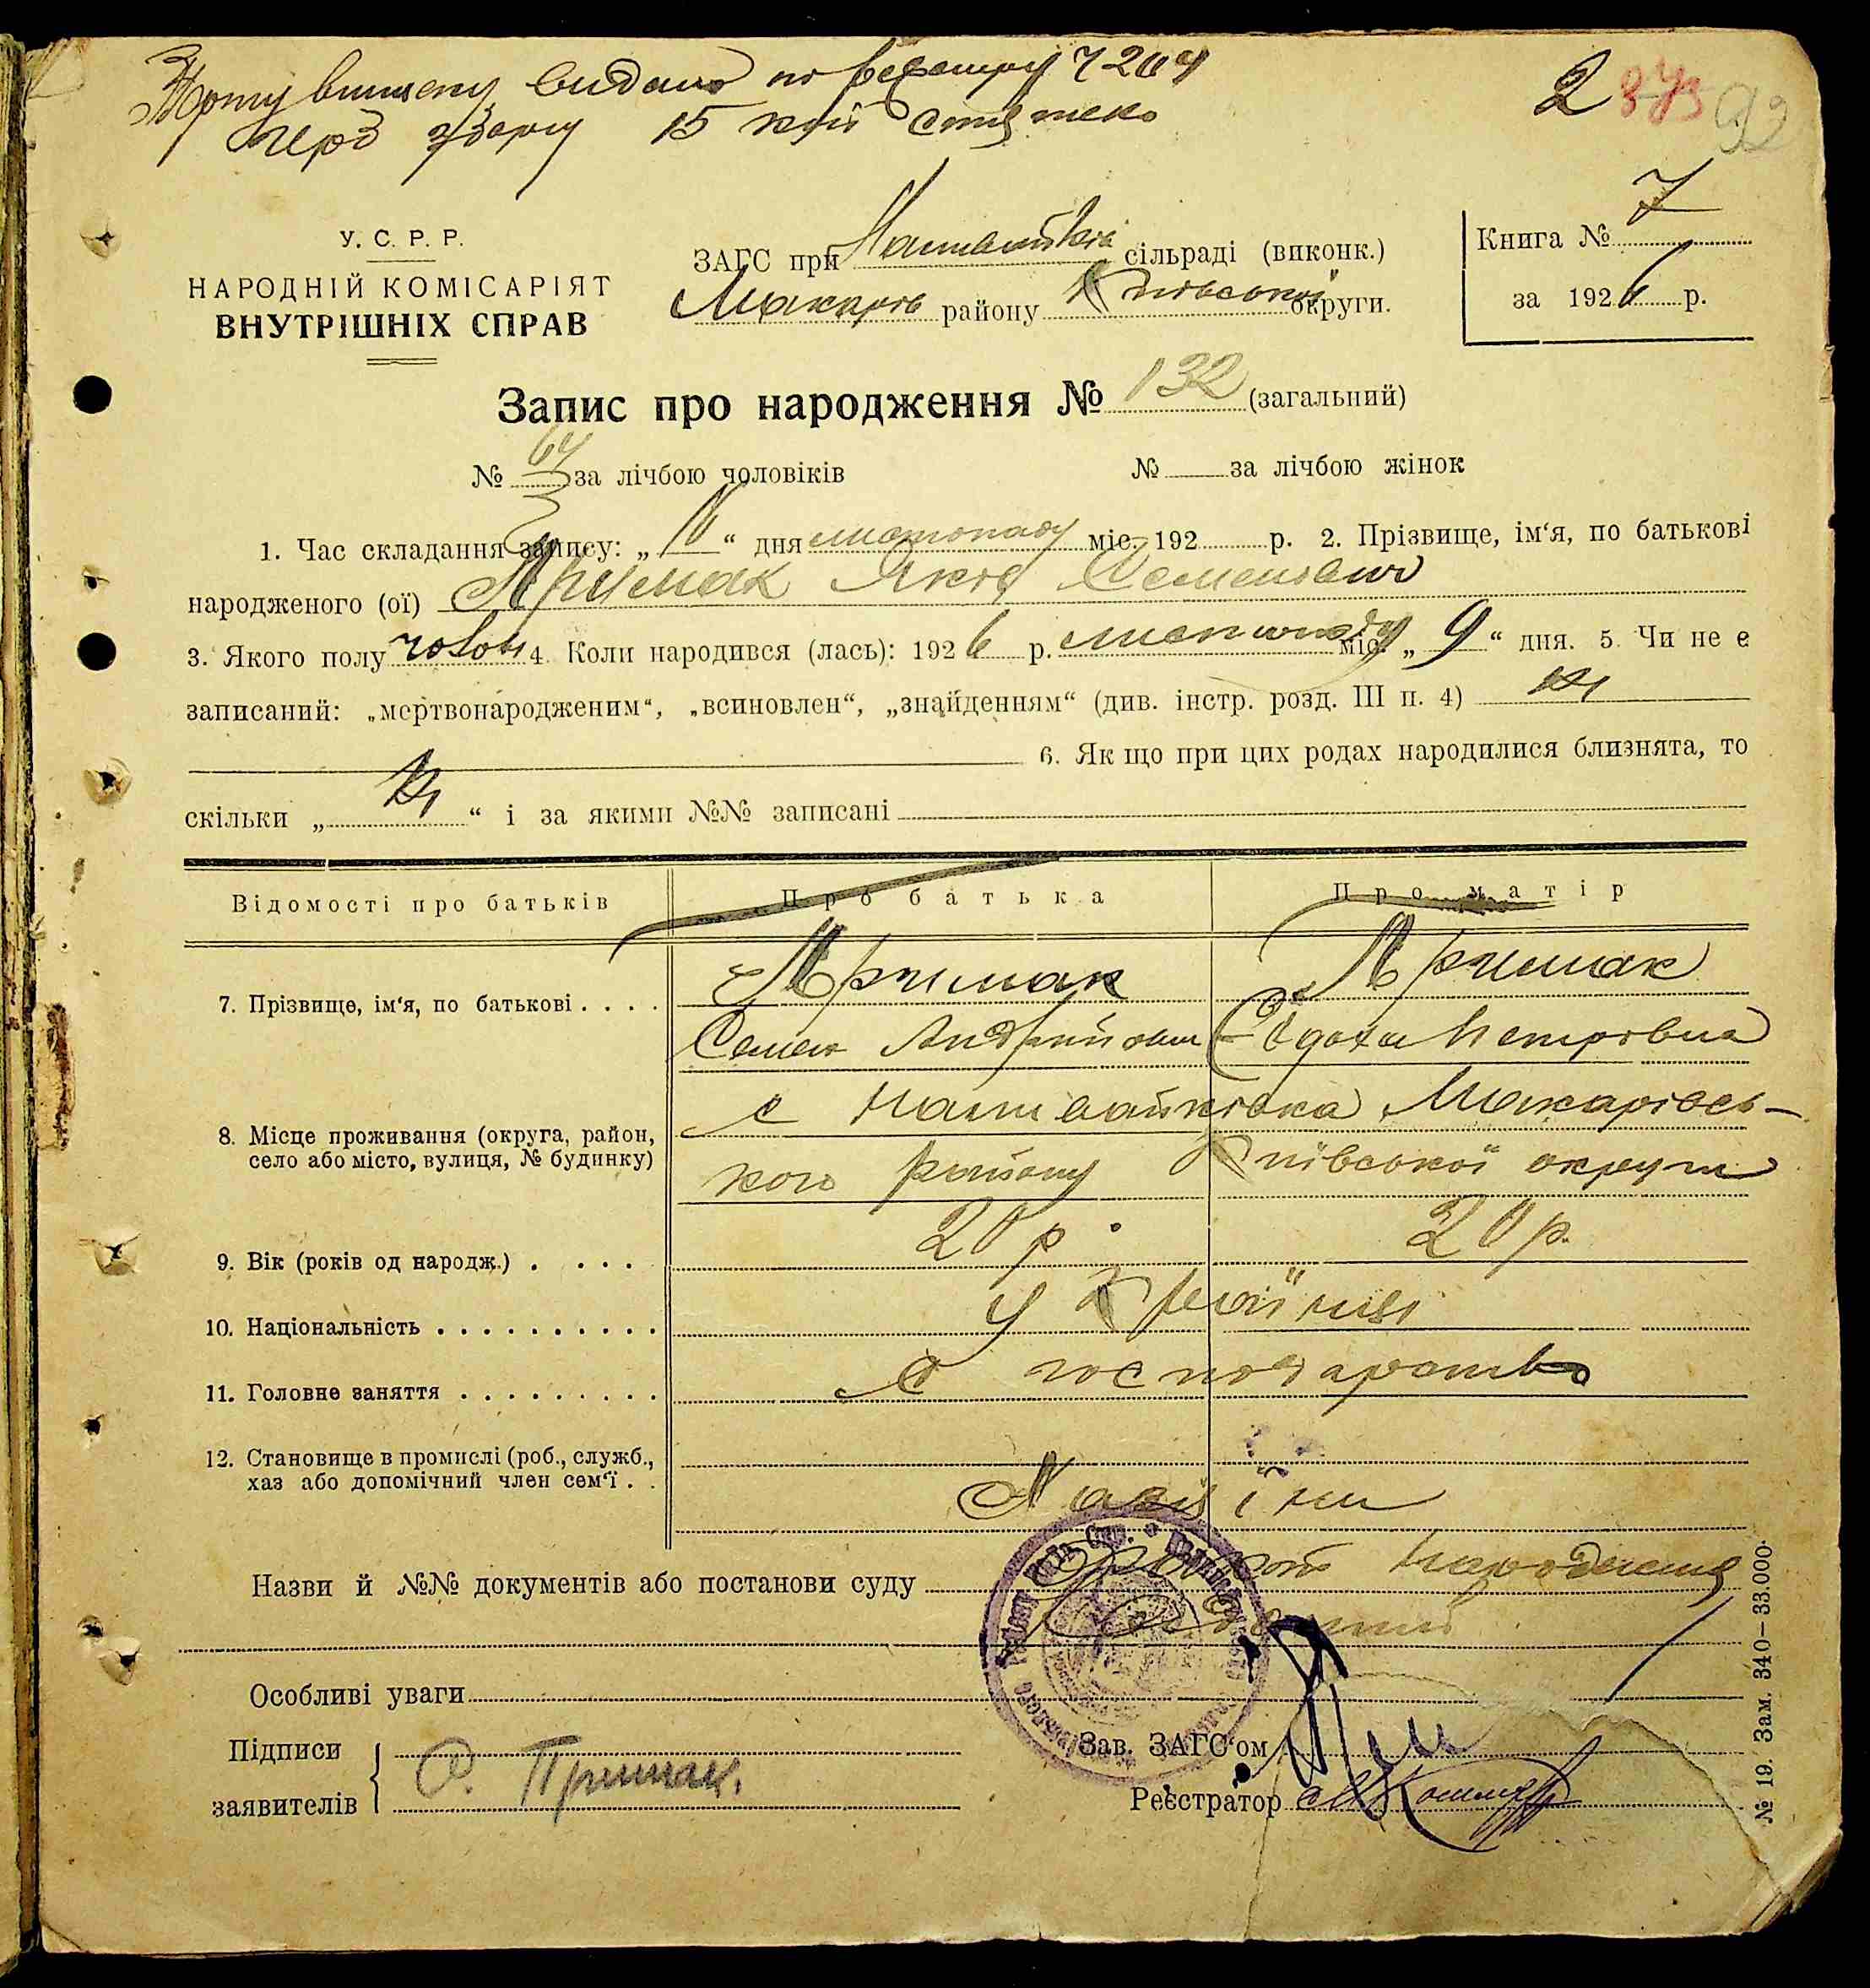 видано по
15 коп
2 92
У. С. Р. Р.
НАРОДНІЙ КОМІСАРІЯТ
ВНУТРІШНІХ СПРАВ
ЗАГС при сільраді (виконк.)
Макарів району Київської округи.
Книга № 7
за 1926 р.
Запис про народження № 132 (загальний)
№ 64 за лічбою чоловіків
№ за лічбою жінок
1. Час складання запису: „ “ дня листопаду міс. 192 р. 2. Прізвище, ім‘я, по батькові
народженого (ої) Примак Яків Семенович
3. Якого полу чолов 4. Коли народився (лась): 1926 р. листопаду міс. „ 9 “ дня. 5. Чи не є
записаний: „мертвонародженим“, „всиновлен“, „знайденням“ (див. інстр. розд. III п. 4) ні
6. Як що при цих родах народилися близнята, то
скільки „ ні “ і за якими №№ записані
Відомості про батьків Про батька Про матір
7. Прізвище, ім‘я, по батькові . . . . Примак Примак
Семен Андрійович Євдоха Петрівна
с Наливайківка Макарівсь-
8. Місце проживання (округа, район,
село або місто, вулиця, № будинку)
кого району Київської округи
9. Вік (років од народж.) . . . . . 20 р. 20 р.
10. Національність . . . . . . . . . . Українці
11. Головне заняття . . . . . . . . . с господарство
12. Становище в промислі (роб., служб.,
хаз або допомічний член сем‘ї . .
Назви й №№ документів або постанови суду народження
Особливі уваги
Підписи
заявителів С. Примак.
Зав. ЗАГС‘ом
Реєстратор
№ 19. Зам. 340—33.000.